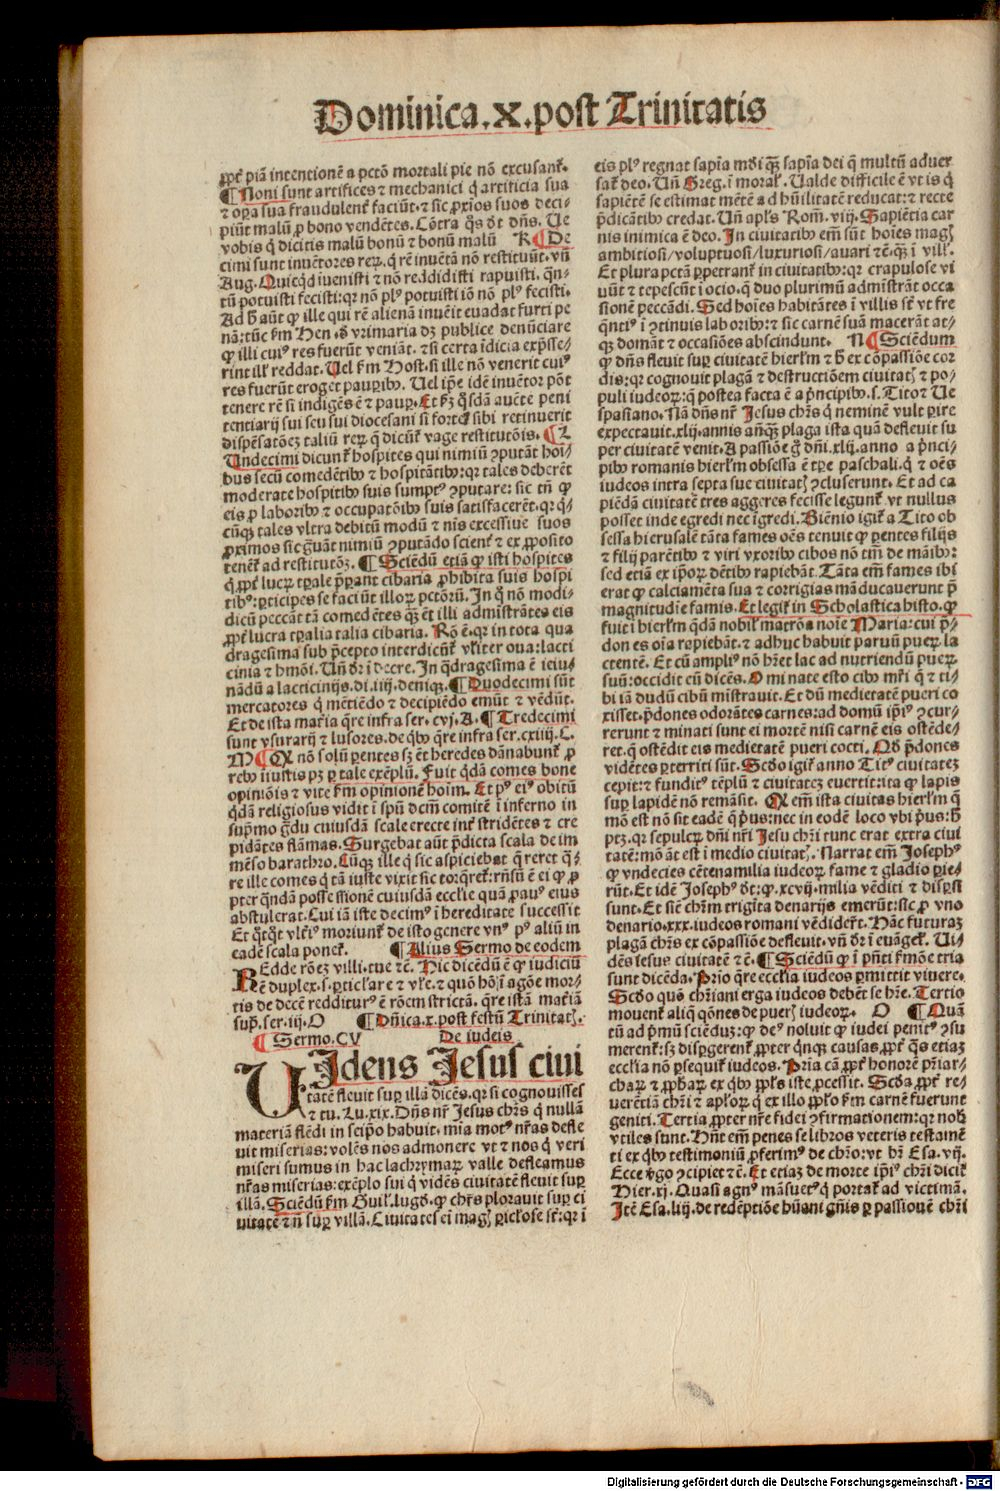 Dominica.x.post Trinitatis
ꝓpt̃ piã intentionẽ a pctõ mortali pie nõ excusant̃.
¶ Noni sunt artifices ⁊ mechanici q̇ artificia sua
⁊ oꝑa sua fraudulent̃ faciũt.⁊ sic ꝓxĩos suos deci-
piũt malũ ꝓ bono vendẽtes. Cõtra q̃s d̃t dñs. Ue
vobis q̇ dicitis malũ bonũ ⁊ bonũ malũ K ¶ De
cimi sunt inuẽtores reꝝ. q̇ rẽ inuẽtã nõ restituũt. vñ
Aug. Quicq̇d iuenisti ⁊ nõ reddidisti rapuisti. q̃n-
tũ potuisti fecisti: qꝛ nõ plꝰ potuisti iõ nõ plꝰ fecisti.
Ad h̃ aũt ꝙ ille qui rẽ alienã inuẽit euadat furti pe
nã: tũc ẜm Hen. d̃ vrimaria dꝫ publice denũciare
ꝙ illi cuiꝰ res fuerũt veniãt. ⁊ si certa ĩdicia exp̃sse-
rint ill̃ reddat. Uel ẜm Host. si ille nõ venerit cuiꝰ
res fuerũt eroget pauꝑibꝰ. Uel ip̃e idẽ inuẽtor põt
tenere rẽ si indigẽs ẽ ⁊ pauꝑ. Et ẜꝫ q̇sdã auẽte peni
tentiarij sui seu sui diocesani si forte sibi retinuerit
dispẽsatõeꝫ taliũ reꝝ q̇ dicũt̃ vage restitutõis. ¶ L
Undecimi dicunt̃ hospites qui nimiũ ꝯputãt hoĩ-
bus secũ comedẽtibꝰ ⁊ hospitãtibꝰ: qꝛ tales deberẽt
moderate hospitibꝰ suis sumptꝰ ꝯputare: sic tñ ꝙ
eis ꝓ laboribꝰ ⁊ occupatõibꝰ suis satisfacerẽt. qꝛ q̇-
cũqꝫ tales vltra debitũ modũ ⁊ nis excessiue suos
ꝓximos sic g̃uãt nimiũ ꝯputãdo scient̃ ⁊ ex ꝓposito
tenẽt̃ ad restitutõꝫ. ¶ Sciẽdũ etiã ꝙ isti hospites
q̇ ꝓpt̃ lucꝝ tꝑale p̃parant cibaria ꝓhibita suis hospi
tibꝰ: ꝑticipes se faciũt illoꝝ pctõꝝ. In q̇ nõ modi-
dicũ peccãt tã comedẽtes q̃ꝫ ẽt illi admĩstrãtes eis
ꝓpt̃ lucra tꝑalia talia cibaria. Rõ ẽ. qꝛ in tota qua
dragesima sub p̃cepto interdicũt̃ vl̃iter oua: lacti
cinia ⁊ hmõi. Uñ dr̃ ĩ decre. In q̃dragesima ẽ ieiu-
nãdũ a lacticinijs. di. iiij. deniqꝫ. ¶ Duodecimi sũt
mercatores q̇ mẽtiẽdo ⁊ decipiẽdo emũt ⁊ vẽdũt.
Et de ista mãria q̃re infra ser. cvj. A. ¶ Tredecimi
sunt vsurarij ⁊ lusores. de q̇bꝰ q̃re infra ser. cxiiij. C.
M ¶ Q̃ nõ solũ ꝑentes sꝫ ẽt heredes dãnabunt̃ ꝓ
rebꝰ iiustis pꝫ ꝑ tale exẽplũ. Fuit q̇dã comes bone
opiniõis ⁊ vite ẜm opinionẽ hoim. Et pꝰ eiꝰ obitũ
q̇dã religiosus vidit ĩ spũ dcm̃ comitẽ ĩ inferno in
sup̃mo g̃du cuiusdã scale erecte int̃ stridẽtes ⁊ cre
pidãtes flãmas. Surgebat aũt p̃dicta scala de im
mẽso barathro. Cũqꝫ ille q̇ sic aspiciebat q̃reret q̃-
re ille comes q̇ tã iuste vixit sic torq̃ret̃: rñsũ ẽ ei ꝙ ꝓ
pter q̃ndã possessionẽ cuiusdã ecclie quã ꝓauꝰ eius
abstulerat. Cui iã iste decimꝰ ĩ hereditate successit
Et q̇tq̇t vlt̃iꝰ moriunt̃ de isto genere vnꝰ pꝰ aliũ in
eadẽ scala ponet̃. ¶ Alius Sermo de eodem
REdde rõeꝫ villi. tue ⁊c̃. Hic dicẽdũ ẽ ꝙ iudiciũ
ẽ duplex. s. ꝑticlare ⁊ vl̃e. ⁊ quõ hõ ĩ agõe mor-
tis de decẽ redditurꝰ ẽ rõem strictã. q̃re istã mãriã
sup̃. ser. iij. O ¶ Dñica. x. post festũ Trinitatꝭ.
¶ Sermo. CV De iudeis
UIdens Jesus ciui
tatẽ fleuit suꝑ illã dicẽs. qꝛ si cognouisses
⁊ tu. Lu. xix. Dñs nr̃ Jesus chr̃s q̇ nullã
materiã flẽdi in seip̃o habuit. mĩa motꝰ nr̃as defle
uit miserias: volẽs nos admonere vt ⁊ nos q̇ veri
miseri sumus in hac lachrymaꝝ valle defleamus
nr̃as miserias: exẽplo sui q̇ vidẽs ciuitatẽ fleuit suꝑ
illã. Sciẽdũ ẜm Guil. lugd̃. ꝙ chr̃s plorauit suꝑ ci
uitatẽ ⁊ ñ suꝑ villã. Ciuitates eĩ magꝭ ꝑiclose sr̃: qꝛ ĩ
eis plꝰ regnat sapĩa mũdi q̃ꝫ sapĩa dei q̇ multũ aduer
sat̃ deo. Uñ Greg. ĩ moral̃. Ualde difficile ẽ vt is q̇
sapiẽtẽ se estimat mẽtẽ ad hũilitatẽ reducat: ⁊ recte
p̃dicãtibꝰ credat. Uñ apl̃s Rom̃. viij. Sapiẽtia car
nis inimica ẽ deo. In ciuitatibꝰ em̃ sũt hoĩes magꝭ
ambitiosi/voluptuosi/luxuriosi/auari ⁊c̃. q̃ꝫ ĩ vill̃.
Et plura pctã ꝑpetrant̃ in ciuitatibꝰ: qꝛ crapulose vi
uũt ⁊ tepescũt ĩ ocio. q̇ duo plurimũ admĩstrãt occa
sionẽ peccãdi. Sed hoĩes habitãtes ĩ villis sr̃ vt fre
q̃ntiꝰ ĩ ꝯtinuis laboribꝰ: ⁊ sic carnẽ suã macerãt at-
qꝫ domãt ⁊ occasiões abscindunt. N ¶ Sciẽdum
ꝙ dñs fleuit suꝑ ciuitatẽ hierl̃m ⁊ h̃ ex cõpassiõe cor
dis: qꝛ cognouit plagã ⁊ destructiõem ciuitatꝭ ⁊ po-
puli iudeoꝝ: q̇ postea facta ẽ a p̃ncipibꝰ. s. Tito ⁊ Ue
spasiano. Nã dñs nr̃ Jesus chr̃s q̇ neminẽ vult ꝑire
expectauit. xlij. annis añqꝫ plaga ista quã defleuit su
per ciuitatẽ venit. A passiõe g̃ dñi. xlij. anno a p̃nci-
pibꝰ romanis hierl̃m obsessa ẽ tꝑe paschali. q̇ ⁊ oẽs
iudeos intra septa sue ciuitatꝭ ꝯcluserunt. Et ad ca
piẽdã ciuitatẽ tres aggeres fecisse legunt̃ vt nullus
posset inde egredi nec ĩgredi. Biẽnio igit̃ a Tito ob
sessa hierusalẽ tãta fames oẽs tenuit ꝙ ꝑentes filijs
⁊ filij parẽtibꝰ ⁊ viri vxoribꝰ cibos nõ tm̃ de mãibꝰ:
sed etiã ex ip̃oꝝ dẽtibꝰ rapiebãt. Tãta em̃ fames ibi
erat ꝙ calciamẽta sua ⁊ corrigias mãducauerunt p̃
magnitudie famis. Et legit̃ in Scholastica histo. ꝙ
fuit ĩ hierl̃m q̇dã nobil̃ matrõa noĩe Maria: cui p̃-
don es oĩa rapiebãt. ⁊ adhuc habuit paruũ pueꝝ la
ctentẽ. Et cũ ampliꝰ nõ hr̃et lac ad nutriendũ pueꝝ
suũ: occidit eũ dicẽs. O mi nate esto cibꝰ mr̃i q̇ ⁊ ti-
bi iã dudũ cibũ mĩstrauit. Et dũ medietatẽ pueri co
xisset. p̃dones odorãtes carnes: ad domũ ip̃iꝰ ꝯcur-
rerunt ⁊ minati sunt ei mortẽ nisi carnẽ eis ostẽde-
ret. q̇ ostẽdit eis medietatẽ pueri cocti. Qd̃ p̃dones
vidẽtes ꝑterriti sũt. Scd̃o igit̃ anno Titꝰ ciuitateꝫ
cepit: ⁊ funditꝰ tẽplũ ⁊ ciuitateꝫ euertit: ita ꝙ lapis
suꝑ lapidẽ nõ remãsit. Q̃ em̃ ista ciuitas hierl̃m q̃
mõ est nõ sit eadẽ q̇ p̃us: nec in eodẽ loco vbi p̃us: h̃
ptꝫ. qꝛ sepulcꝝ dñi nr̃i Jesu chr̃i tunc erat extra ciui
tatẽ: mõ ãt est ĩ medio ciuitatꝭ. Narrat em̃ Josephꝰ
ꝙ vndecies cẽtenamilia iudeoꝝ fame ⁊ gladio ꝑie-
rũt. Et idẽ Josephꝰ d̃t: ꝙ. xcvij. milia vẽditi ⁊ disꝑsi
sunt. Et sic̃ chr̃m trigĩta denarijs emerũt: sic ꝓ vno
denario. xxx. iudeos romani vẽdider̃t. Hãc futuraꝫ
plagã chr̃s ex cõpassiõe defleuit. vñ dr̃ ĩ euãgel̃. Ui-
dẽs iesus ciuitatẽ ⁊c̃. ¶ Sciẽdũ ꝙ ĩ p̃nti ẜmõe tria
sunt dicẽda. Prĩo q̃re ecclĩa iudeos ꝑmittit viuere.
Scd̃o quõ chr̃iani erga iudeos debẽt se hr̃e. Tertio
mouent̃ aliq̃ q̃ones de puerꝭ iudeoꝝ. O ¶ Quã
tũ ad p̃mũ sciẽduꝫ: ꝙ deꝰ noluit ꝙ iudei penitꝰ ꝯsu
merent̃: sꝫ disꝑgerent̃ ꝓpter q̇nqꝫ causas ꝓpt̃ q̃s etiaꝫ
ecclia nõ ꝑsequit̃ iudeos. Pria cã ꝓpt̃ honorẽ p̃riar-
chaꝝ ⁊ ꝓph̃aꝝ ex q̇bꝰ ppl̃s iste ꝓcessit. Scd̃a ꝓpt̃ re-
uerẽtiã chr̃i ⁊ apl̃oꝝ q̇ ex illo ppl̃o ẜm carnẽ fuerunt
geniti. Tertia ꝓpter nr̃e fidei ꝯfirmationem: qꝛ nobꝭ
vtiles sunt. Hñt em̃ penes se libros veteris testamẽ
ti ex q̇bꝰ testimoniũ ꝓferimꝰ de chr̃o: vt hr̃ Esa. vij.
Ecce v̇go ꝯcipiet ⁊c̃. Et etiaꝫ de morte ip̃iꝰ chr̃i dicit̃
Hier. xj. Quasi agnꝰ mãsuetꝰ q̇ portat̃ ad victimã.
Itẽ Esa. liij. de redẽptiõe hũani gñis ꝑ passionẽ chr̃i
Digitalisierung gefördert durch die Deutsche Forschungsgemeinschaft - DFG